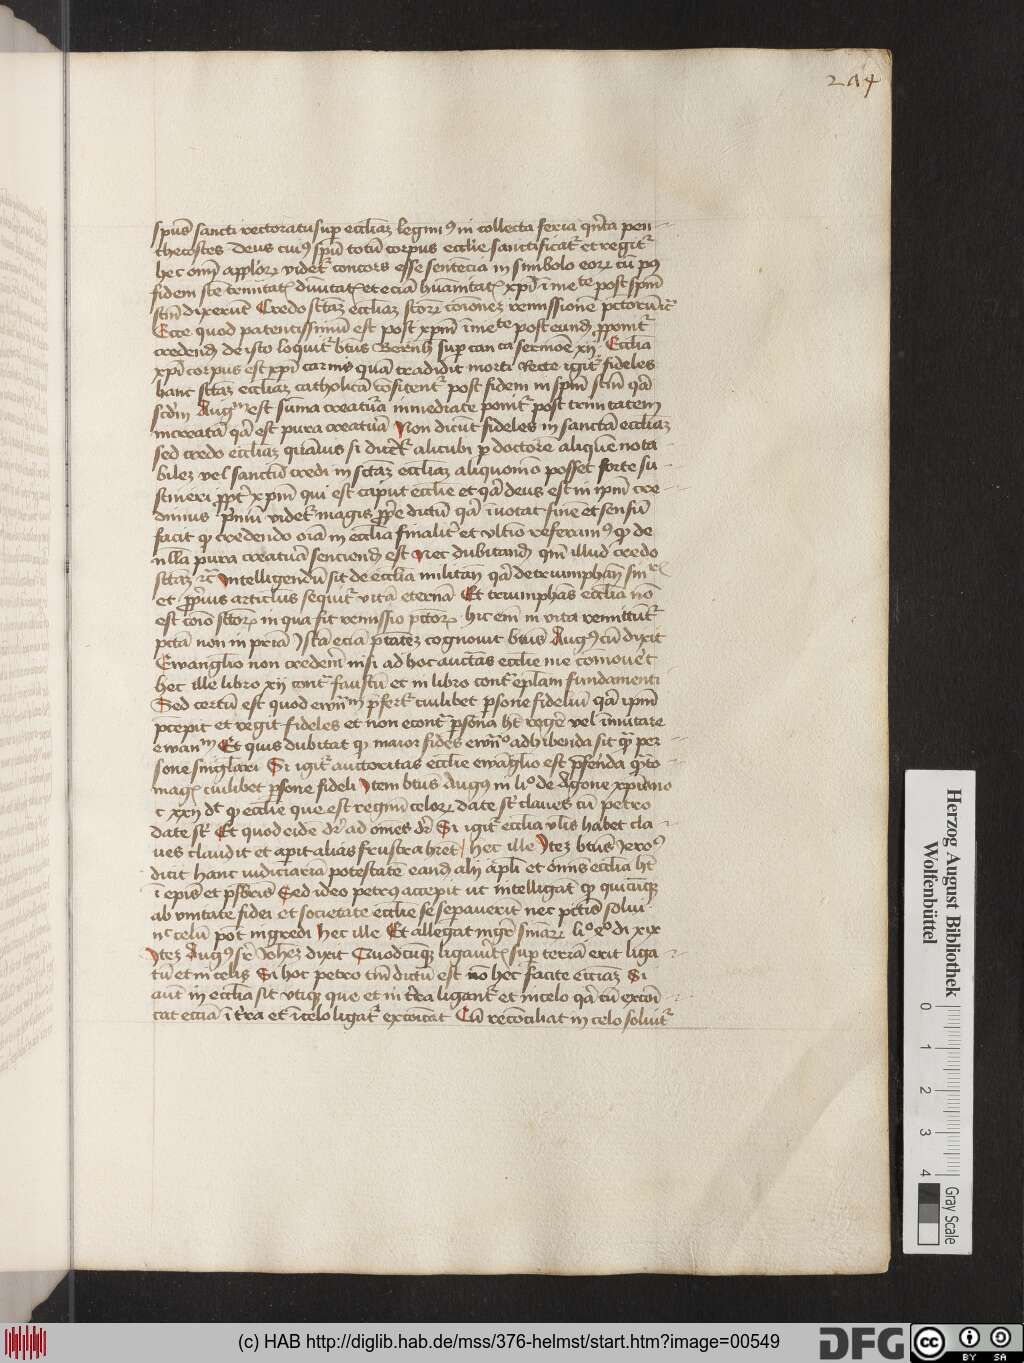 274
spūs sancti rectoratu sup ecclīaz legimꝰ in collecta feria qn̄ta pen
thecostes Deus cuiꝰ spū totū corpus ecclīe sanctificat᷑ et regit᷑
hec om̄ia apl'orꝝ videt᷑ concors esse sentēcia in simbolo eorꝝ cū pꝰ
fidem ste trinitat᷑ diuitat᷑ et eciā humanitat᷑ xp̄i īmeᵗᵉ post spm̄
stm̄ dixerūt Credo stāz ecclīaz stōrꝝ cōionez remissionē pctorū ⁊c̄
Ecce quod patentissimū est post xpm̄ īmeᵗᵉ post eund ꝓponit᷑
credend de isto loquit᷑ btūs Bernh sup can ca sermōe xij Ecclīa
xp̄i corpus est xp̄i carius quā tradidit morti Recte igit᷑ fideles
hanc stāz ecclīaz catholicā cōfitent᷑ post fidem in spm̄ stm̄ qā
scdm Augᵐ est sūma creatura inmediate ponit᷑ post trinitatem
increatā qā est pura creatura Non dicūt fideles in sanctā ecclīaz
sed credo ecclīaz quāuis si dicēt᷑ alicubi p doctore aliquē nota
bilez vel sanctū credi in stāz ecclīaz aliquomō posset forte su
stineri ꝓpt᷑ xpm̄ qui est caput ecclīe et qā deus est in ipm̄ cre
dimus p̄mū videt᷑ magis ꝓpe dictū qā īuocat finē et sensū
facit ꝙ credendo oīa in ecclīa finalit᷑ et vltīo referimꝰ ꝙ de
nlla pura creatura senciend est Nec dubitand qn̄ illud credo
stāz ⁊c̄ intelligendū sit de ecclīa militāti qā de triumphāti
et ꝓprius articulus sequit᷑ vitā eternā Et triumphās ecclīa nō
est cōio stōrꝝ in qua fit remissio pctorꝝ hic enī in vita remittūt᷑
pctā non in p̄riā Istā eciā p̄tātez cognouit btūs Augꝰ cū dixit
Ewanglio non crederē nisi ad hoc auctās ecclīe me cōmouet
hec ille libro xij cont᷑ faustū et in libro cont᷑ eplām fundamenti
Sed certū est quod ewᵐ p̄fert᷑ cuilibet psone fideliū qā ipm̄
p̄cepit et regit fideles et non econt᷑ psona ht regē vel īmutare
ewanᵐ Et quis dubitat ꝙ maior fides ewᵒ adhibenda sit qꝫ per
sone singlari Si igit᷑ auctoritas ecclīe ewāglio est p̄ferenda qn̄to
mag᷑ cuilibet psone fideli Itez btūs Augꝰ in liᵒ de Agone xpiano
c xxxj dt ꝙ ecclīe que est regnū celorꝝ date st̄ claues cū petro
date st̄ Et quod eidē dr̄ ad omēs dr̄ Si igit᷑ ecclīa vlis habet cla
ues claudit et aperit alias frustra hret hec ille Itez btūs Ieroꝰ
dicit hanc iudiciariā potestatē eand alij apl'i et omīs ecclīa ht
ī epīs et p̄sbris Sed ideo petrꝰ accepit ut intelligāt ꝙ quicūqꝫ
ab vnitate fidei et societate ecclīe se separauerit nec pctis solui
nᶜ celū pōt ingredi Hec ille Et allegat mgr̄ sniārꝝ liᵒ 4ᵒ di xix
Itez Augꝰ sr̄ Ioh̄ez dixit Quodcūqꝫ ligauit᷑ sup terrā erit liga
tū et in celis Si hoc petro tm̄ dictū est nō hec facite eccīaz Si
aut in ecclīa fit vtiqꝫ que et in tr̄ra ligant᷑ et in celo qā cū excōi
cat eccīa ī tr̄ra et ī celo ligat᷑ excōicat Cū reconciliat in celo soluit᷑
Herzog August Bibliothek
Wolfenbüttel
0 1 2 3 4
Gray Scale
(c) HAB http://diglib.hab.de/mss/376-helmst/start.htm?image=00549
DFG
cc BY SA